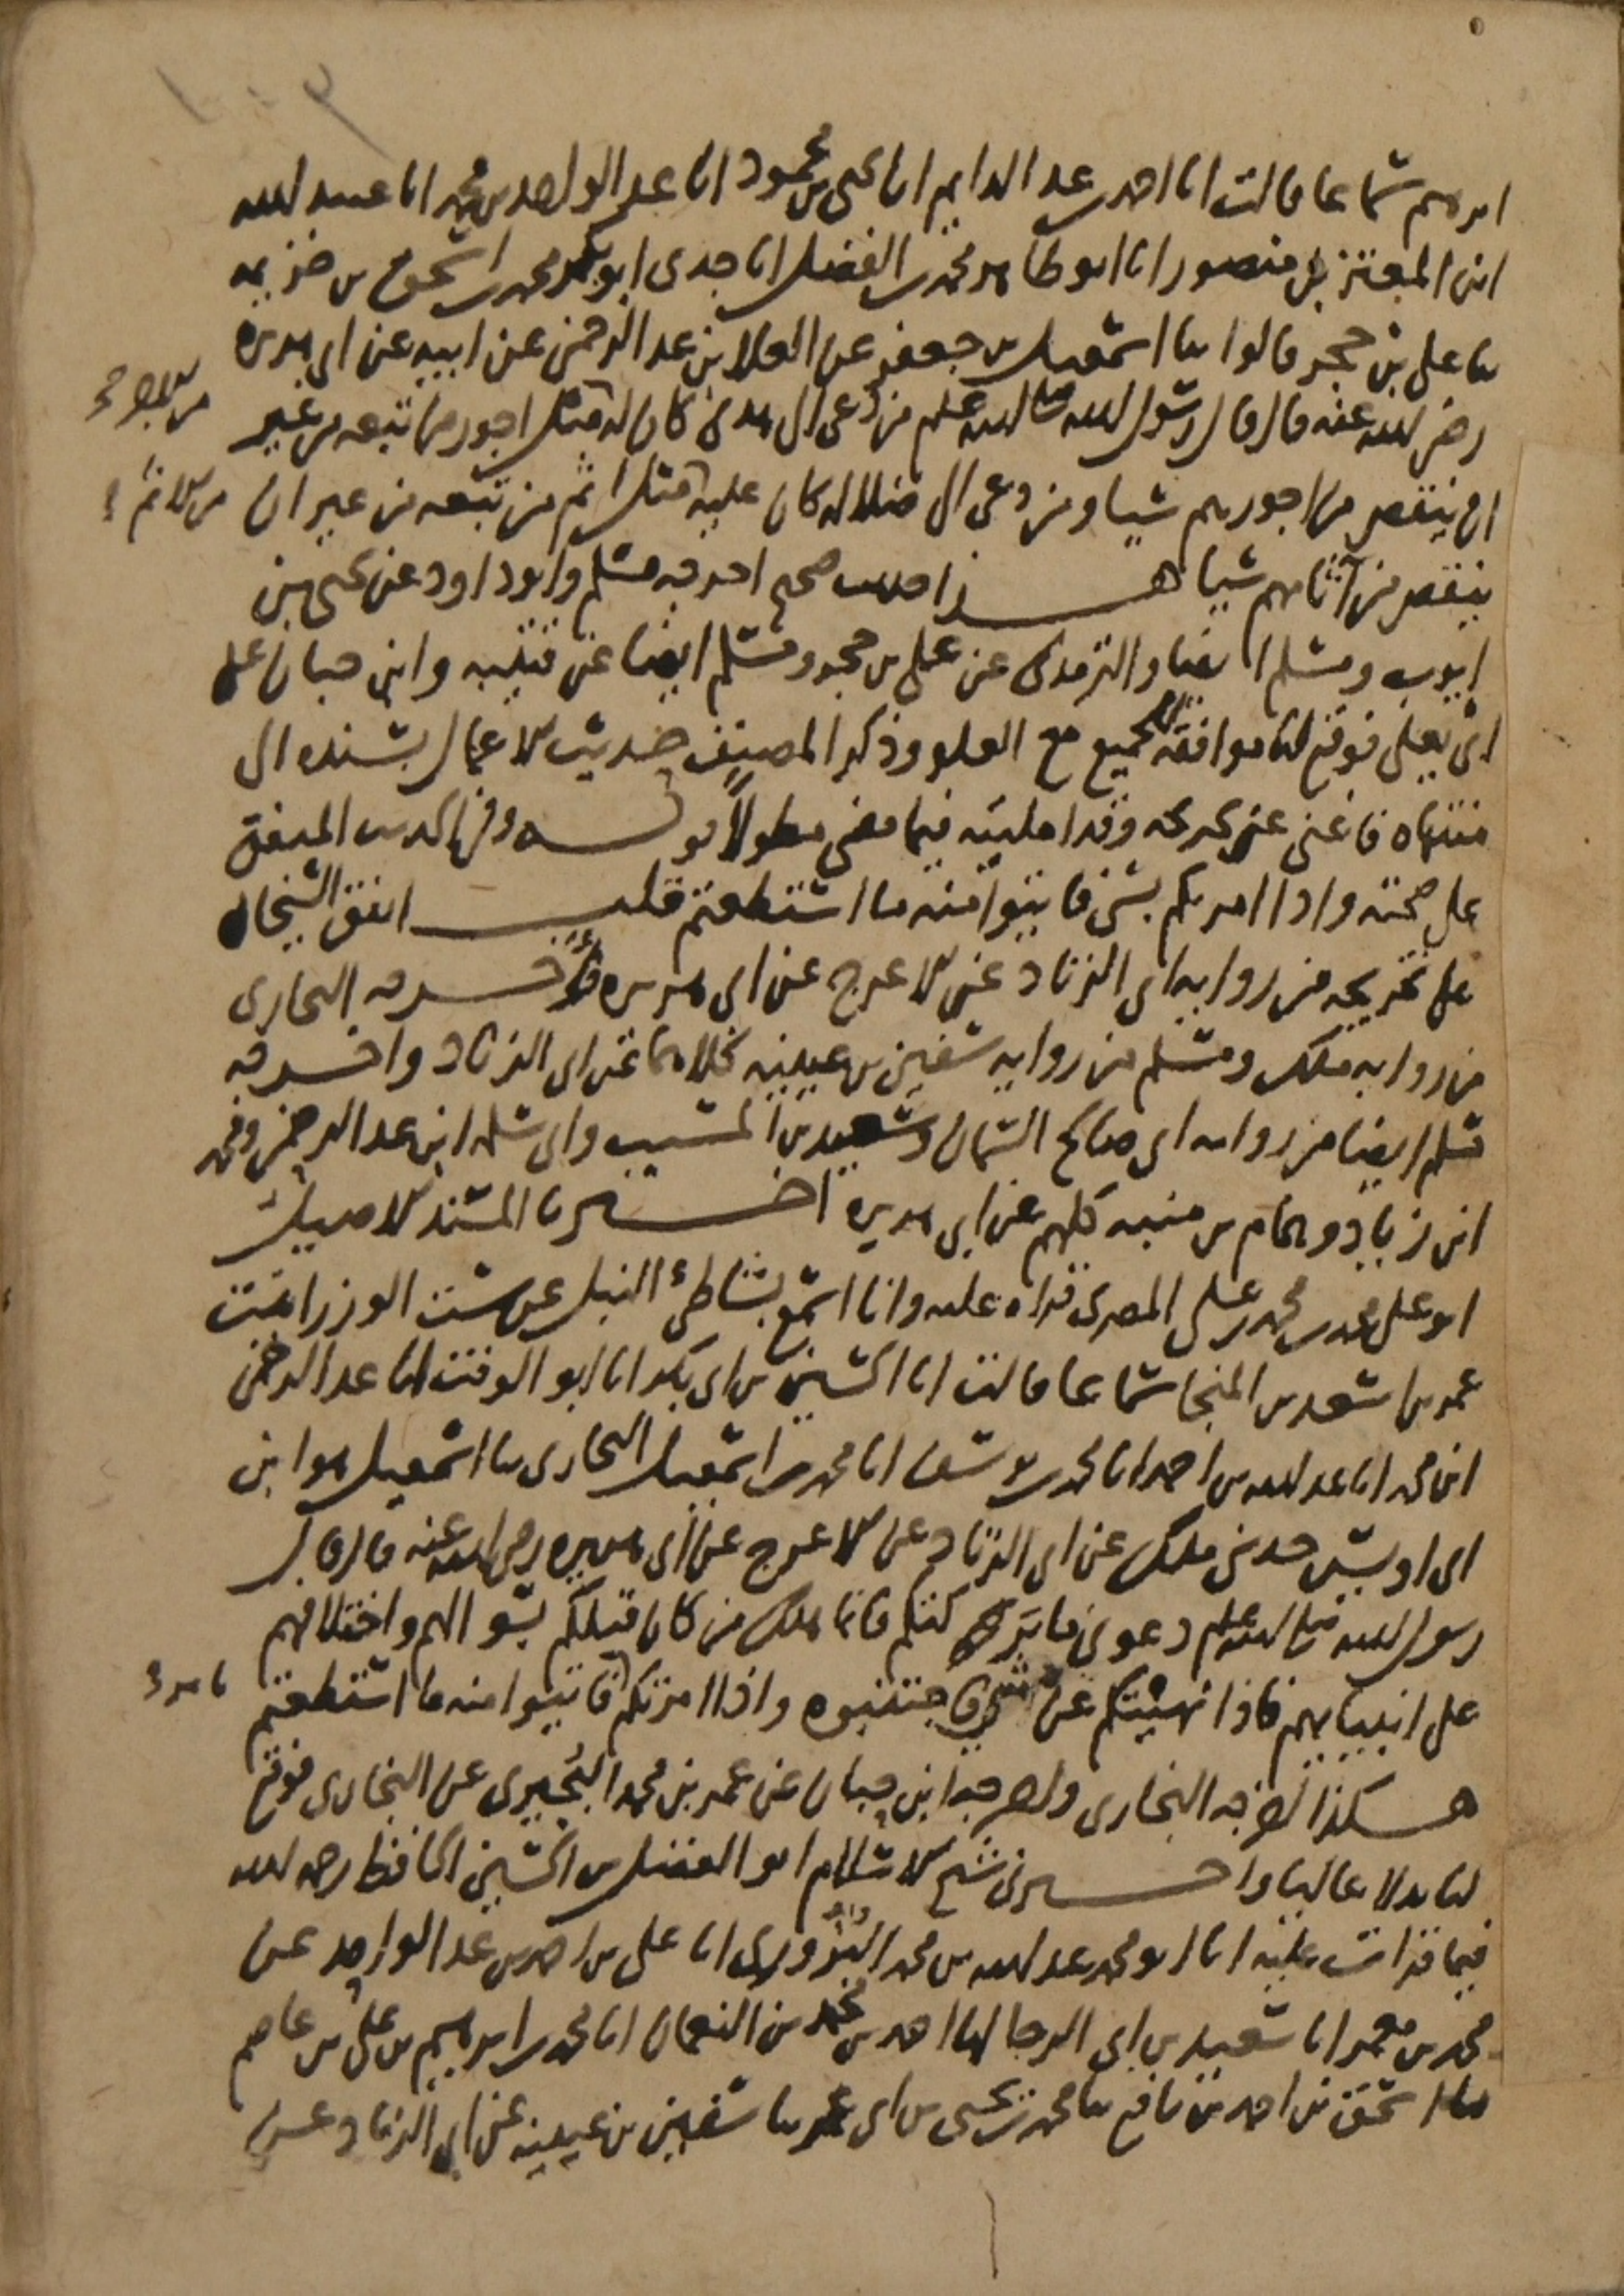 ابرهيم سماعا قالت انا احمد بن عبد الدايم انا يحيى بن محمود انا عبد الواحد بن محمد انا عبيد الله
ابن المعتز بن منصور انا ابو طاهر محمد بن الفضل انا جدي ابو بكر محمد بن اسحق بن خزيمه
ثنا علي بن حجر قالوا ثنا اسمعيل بن جعفر عن العلا بن عبد الرحمن عن ابيه عن ابي هريره
رضي الله عنه قال قال رسول الله صلى الله عليه وسلم من دعى الى هدى كان له مثل اجور من تبعه من غير
من الاجر
ان ينقص من اجورهم شيا ومن دعى الى ضلاله كان عليه مثل اثم من تبعه من غير ان
من الاثم
ينقص من آثامهم شيا هذا حديث صحيح اخرجه مسلم وابو داود عن يحيى بن
ايوب ومسلم ايضا والترمذي عن علي بن حجر ومسلم ايضا عن قتيبه وابن حبان عن
ابي يعلى فوقع لنا موافقه للجميع مع العلو وذكر المصنف حديث الاعمال بسنده الى
منتهاه فاغنى عن تخريجه وقد امليته فيما مضى مطولا قوله وفي الحديث المتفق
على صحته واذا امرتكم بشي فاتيوا منه ما استطعتم قلت اتفق الشيخان
على تخريجه من روايه ابي الزناد عن الاعرج عن ابي هريره فاخرجه البخاري
من روايه ملك ومسلم من روايه سفين بن عيينه كلاهما عن ابي الزناد واخرجه
مسلم ايضا من روايه ابي صالح السمان وسعيد بن المسيب وابي سلمه ابن عبد الرحمن ومحمد
ابن زياد وهمام بن منبه كلهم عن ابي هريره اخبرنا المسند الاصيل
ابو علي محمد بن محمد بن علي المصري قراه عليه وانا اسمع بشاطئ النيل عن ست الوزرا بنت
عمر بن اسعد بن المنجا سماعا قالت انا الحسين بن ابي بكر انا ابو الوقت انا عبد الرحمن
ابن محمد انا عبد الله بن احمد انا محمد بن يوسف انا محمد بن اسمعيل البخاري ثنا اسمعيل هو ابن
ابي اويس حدثني ملك عن ابي الزناد عن الاعرج عن ابي هريره رضي الله عنه قال قال
رسول الله صلى الله عليه وسلم دعوني ما تركتكم فانما هلك من كان قبلكم بسوالهم واختلافهم
على انبيايهم فاذا نهيتكم عن شي فاجتنبوه واذا امرتكم فاتيوا منه ما استطعتم
بامر
هكذا اخرجه البخاري واخرجه ابن حبان عن عمر بن محمد البجيري عن البخاري فوقع
لنا بدلا عاليا واخبرني شيخ الاسلام ابو الفضل بن الحسين الحافظ رحمه الله
فيما قرات عليه انا ابو محمد عبد الله بن محمد البزوري انا علي بن احمد بن عبد الواحد عن
محمد بن معمر انا سعيد بن ابي الرجا انا احمد بن محمد بن النعمان انا محمد بن ابرهيم بن علي بن عاصم
ثنا اسحق بن احمد بن نافع ثنا محمد بن يحيى بن ابي عمر ثنا سفين بن عيينه عن ابي الزناد عن